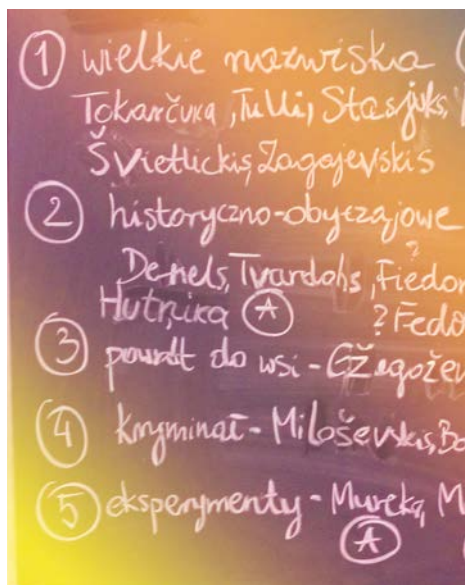 ① wielkie nazwiska
Tokarčuka, Tulli, Stasjuks,
Švietlickis, Zagajevskis
② historyczno-obyczajowe
?
Denels, Tvardohs, Fiedor
Hutņika Ⓐ ? Fedo
③ powrót do wsi - Gžegožev
④ kryminał - Miloševskis, Bo
⑤ eksperymenty - Murcka, M
Ⓐ